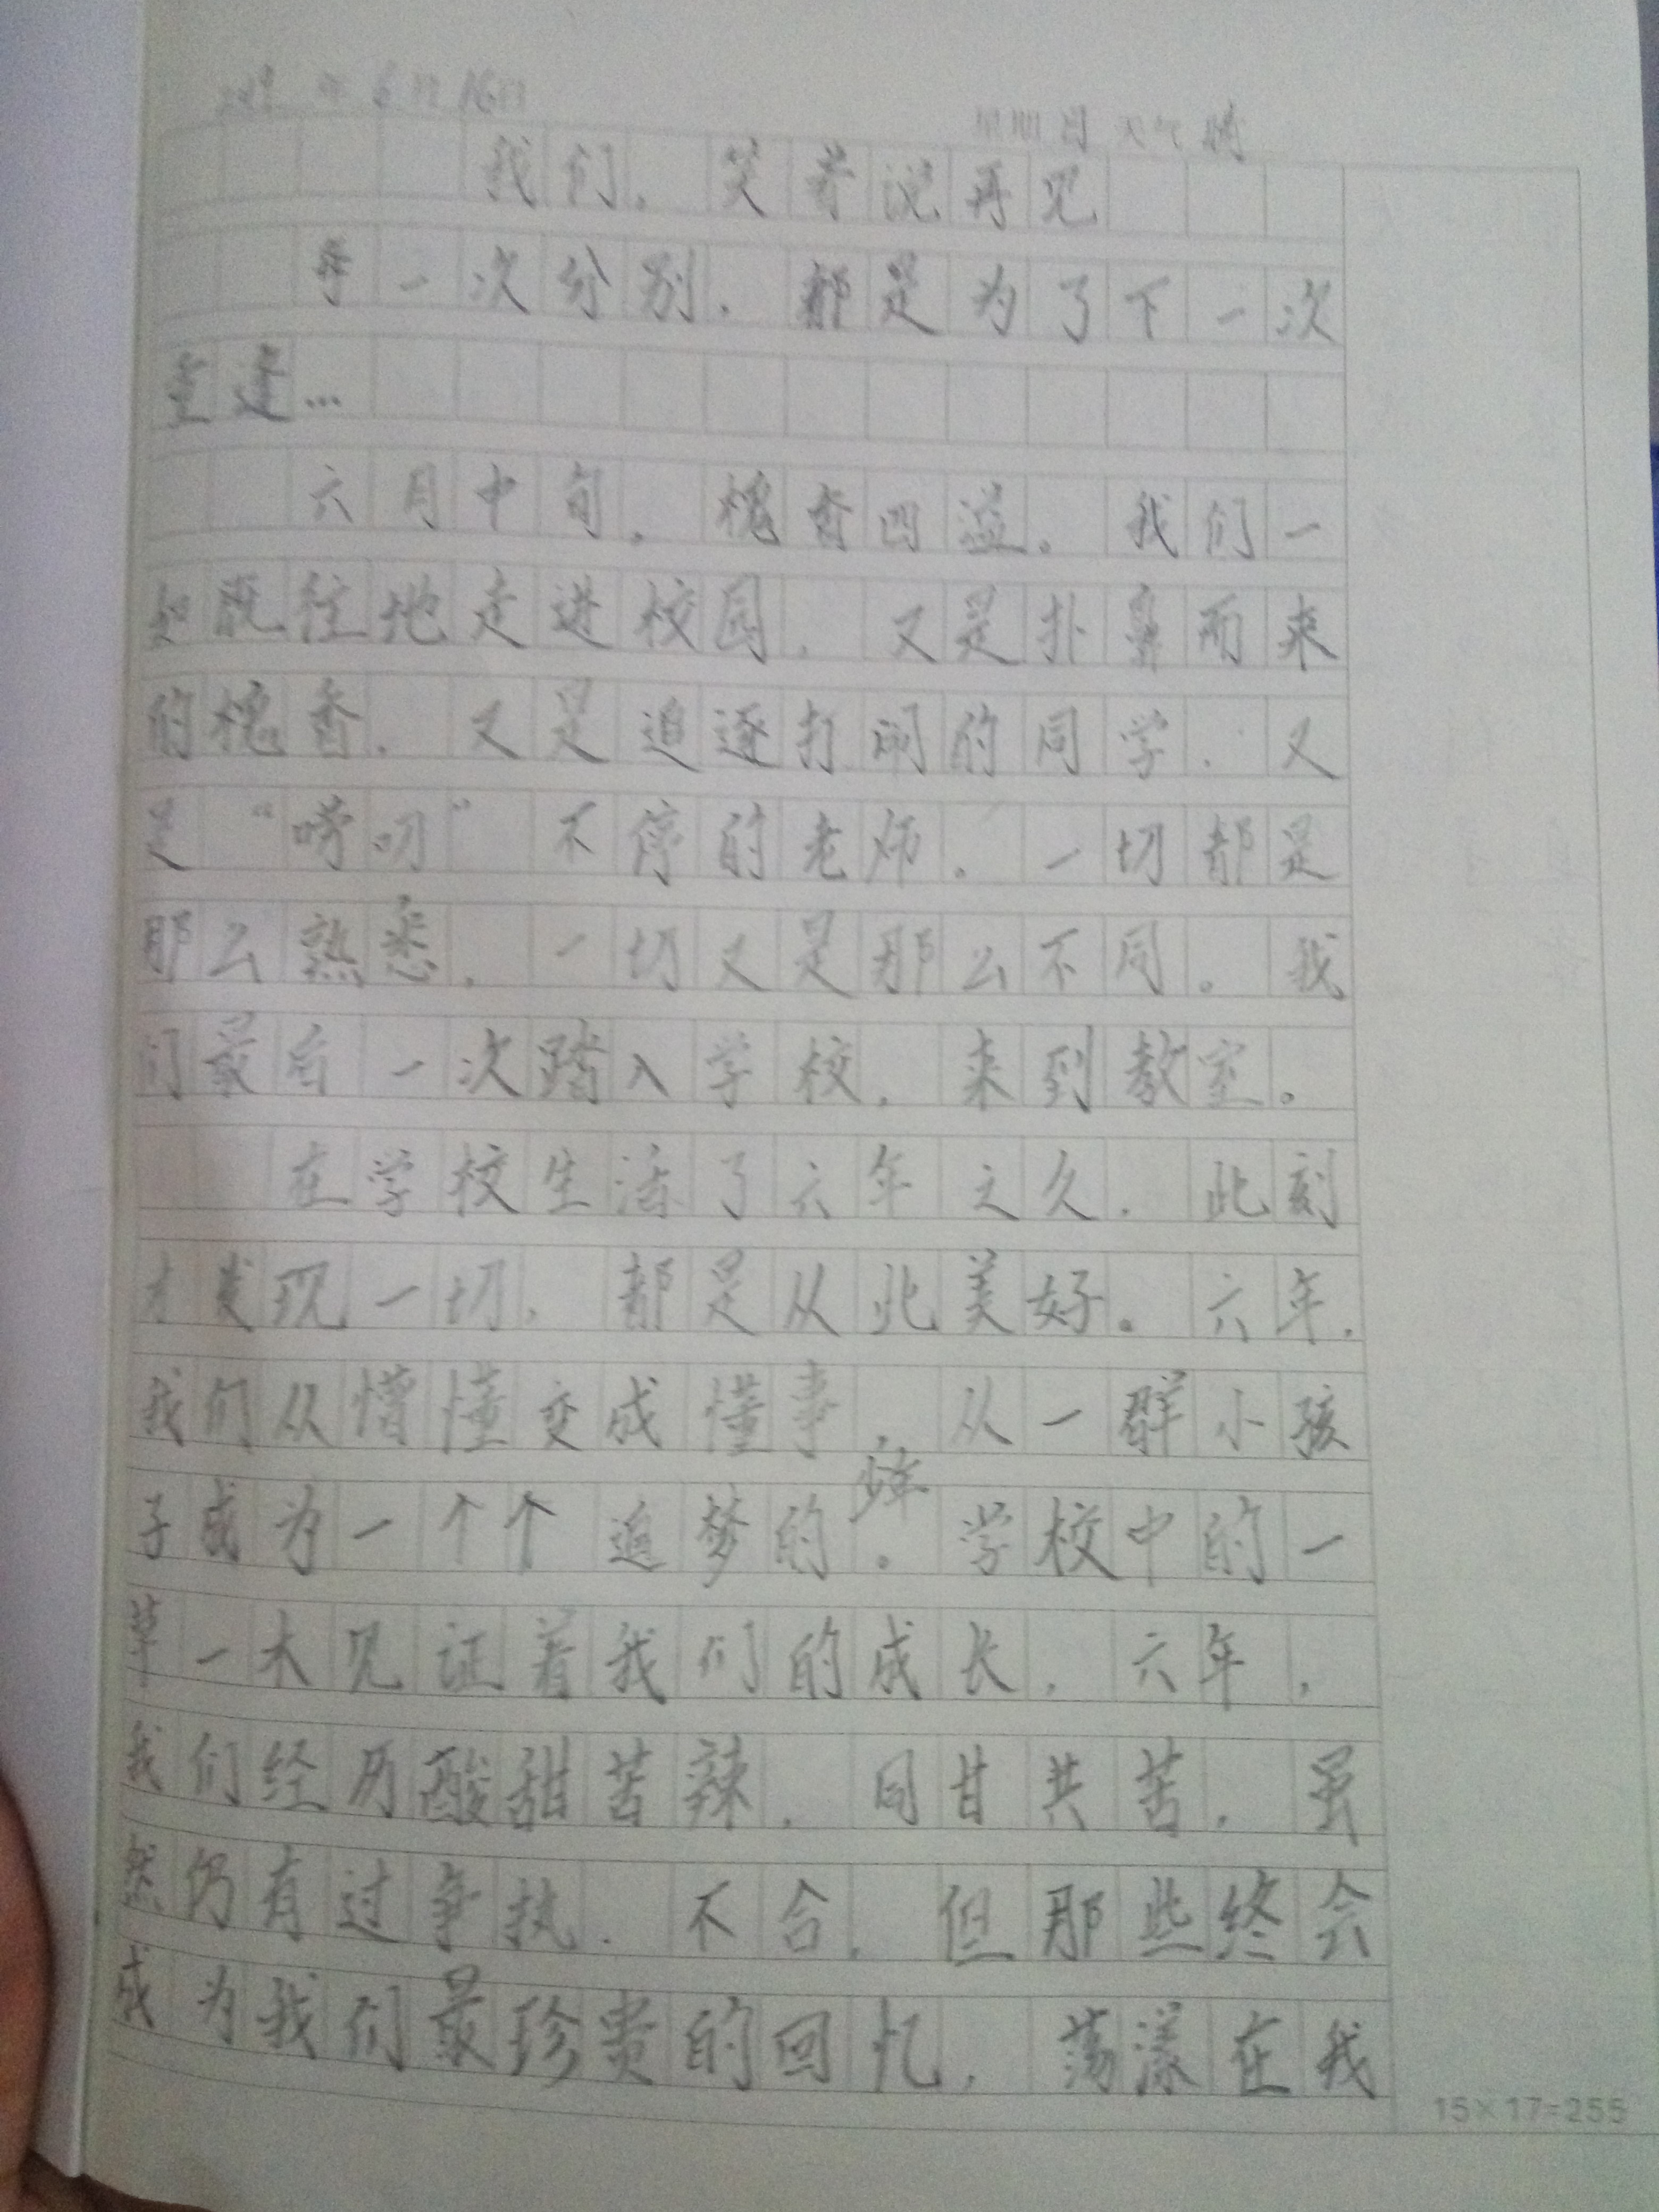 年6月16日
星期日 天气 晴
我们，笑着说再见
每一次分别，都是为了下一次
重逢…
六月中旬，槐香四溢。我们一
如既往地走进校园，又是扑鼻而来
的槐香，又是追逐打闹的同学，又
是“唠叨”不停的老师。一切都是
那么熟悉，一切又是那么不同。我
们最后一次踏入学校，来到教室。
在学校生活了六年之久，此刻
才发现一切，都是从此美好。六年，
我们从懵懂变成懂事，从一群小孩
子成为一个个追梦的少年。学校中的一
草一木见证着我们的成长，六年，
我们经历酸甜苦辣，同甘共苦，虽
然仍有过争执，不合，但那些终会
成为我们最珍贵的回忆，荡漾在我
15×17=255